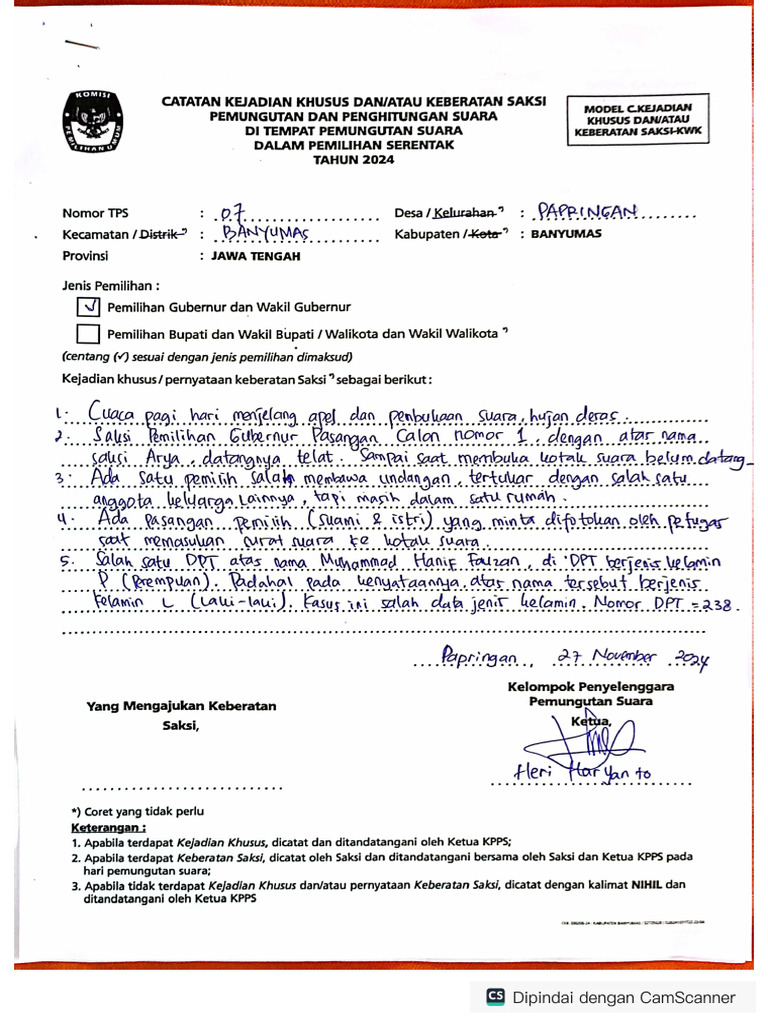 KOMISI
PEMILIHAN UMUM
CATATAN KEJADIAN KHUSUS DAN/ATAU KEBERATAN SAKSI
PEMUNGUTAN DAN PENGHITUNGAN SUARA
DI TEMPAT PEMUNGUTAN SUARA
DALAM PEMILIHAN SERENTAK
TAHUN 2024
MODEL C.KEJADIAN
KHUSUS DAN/ATAU
KEBERATAN SAKSI-KWK
Nomor TPS : 07 Desa / Kelurahan *) : PAPRINGAN
Kecamatan / Distrik *) : BANYUMAS Kabupaten / Kota *) : BANYUMAS
Provinsi : JAWA TENGAH
Jenis Pemilihan :
✓ Pemilihan Gubernur dan Wakil Gubernur
Pemilihan Bupati dan Wakil Bupati / Walikota dan Wakil Walikota *)
(centang (✓) sesuai dengan jenis pemilihan dimaksud)
Kejadian khusus / pernyataan keberatan Saksi *) sebagai berikut :
1. Cuaca pagi hari menjelang apel dan penbukaan suara, hujan deras.
2. Saksi Pemilihan Gubernur Pasangan Calon nomor 1, dengan atas nama
saksi Arya, datangnya telat. Sampai saat membuka kotak suara belum datang
3. Ada satu pemilih salah membawa undangan, tertukar dengan salah satu
anggota keluarga lainnya, tapi masih dalam satu rumah.
4. Ada pasangan pemilih (suami & istri) yang minta difotokan oleh petugas
saat memasukan surat suara ke kotak suara.
5. Salah satu DPT atas nama Muhammad Hanif Fauzan, di DPT berjenis kelamin
P (Perempuan). Padahal pada kenyataannya, atas nama tersebut berjenis
kelamin L (Laki-laki). Kasus ini salah data jenis kelamin. Nomor DPT = 238.
Papringan, 27 November 2024
Kelompok Penyelenggara
Pemungutan Suara
Ketua,
Heri Haryanto
Yang Mengajukan Keberatan
Saksi,
*) Coret yang tidak perlu
Keterangan :
1. Apabila terdapat Kejadian Khusus, dicatat dan ditandatangani oleh Ketua KPPS;
2. Apabila terdapat Keberatan Saksi, dicatat oleh Saksi dan ditandatangani bersama oleh Saksi dan Ketua KPPS pada
hari pemungutan suara;
3. Apabila tidak terdapat Kejadian Khusus dan/atau pernyataan Keberatan Saksi, dicatat dengan kalimat NIHIL dan
ditandatangani oleh Ketua KPPS
CS Dipindai dengan CamScanner